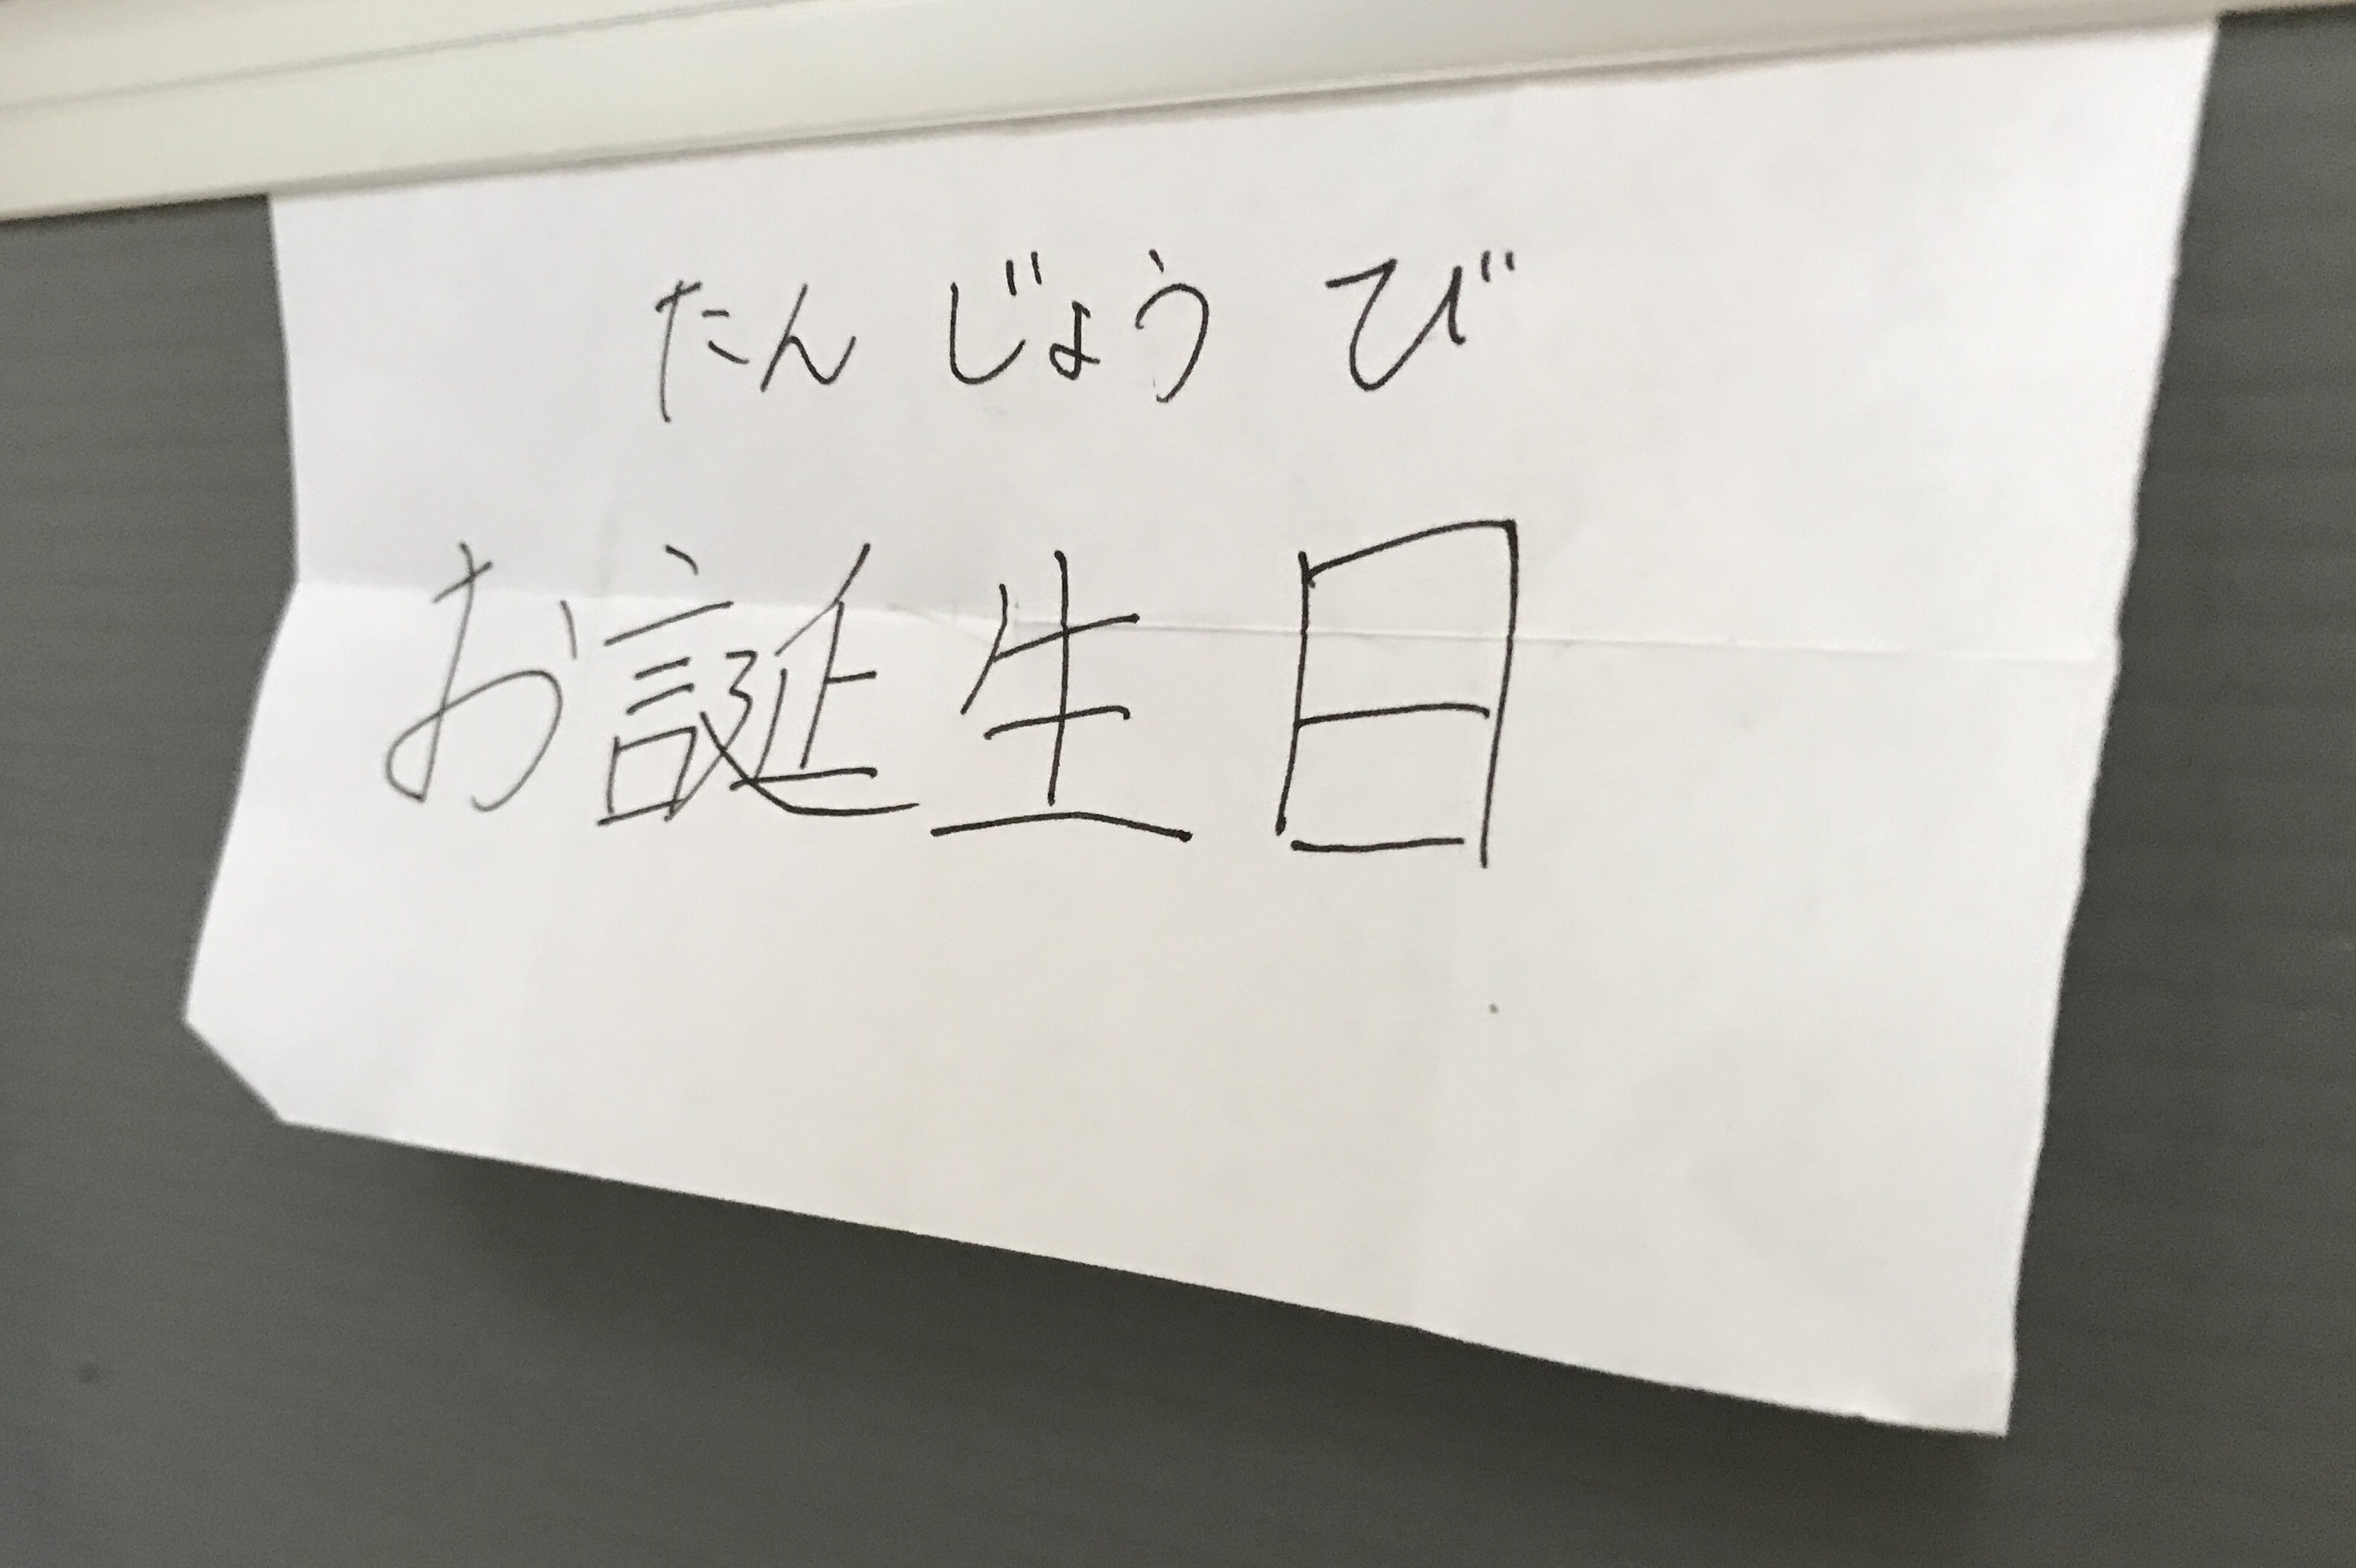 たんじょうび
お誕生日